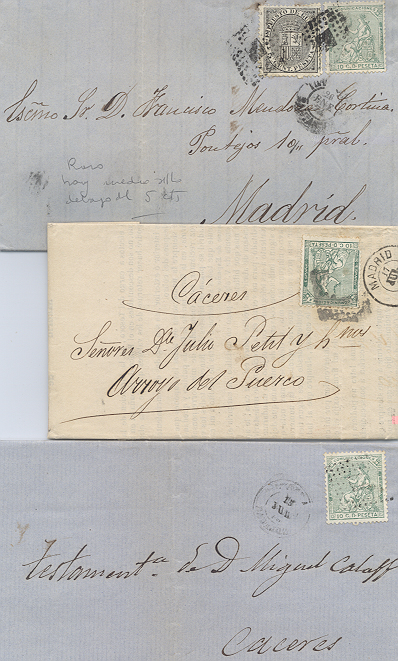 IMPUESTO DE GUERRA
10 C. D PESETA
Escmo Sr. D. Francisco Mendoza Cortina
Pontejos 10 pral.
Raro
hay medio sello
debajo del 5 cts
Madrid.
10 C. D PESETA
MADRID
17
Cáceres
Señores Dn Julio Petit y hnos
Arroyo del Puerco
10 C. D PESETA
Testamenta de D Miguel Calaff
Caceres